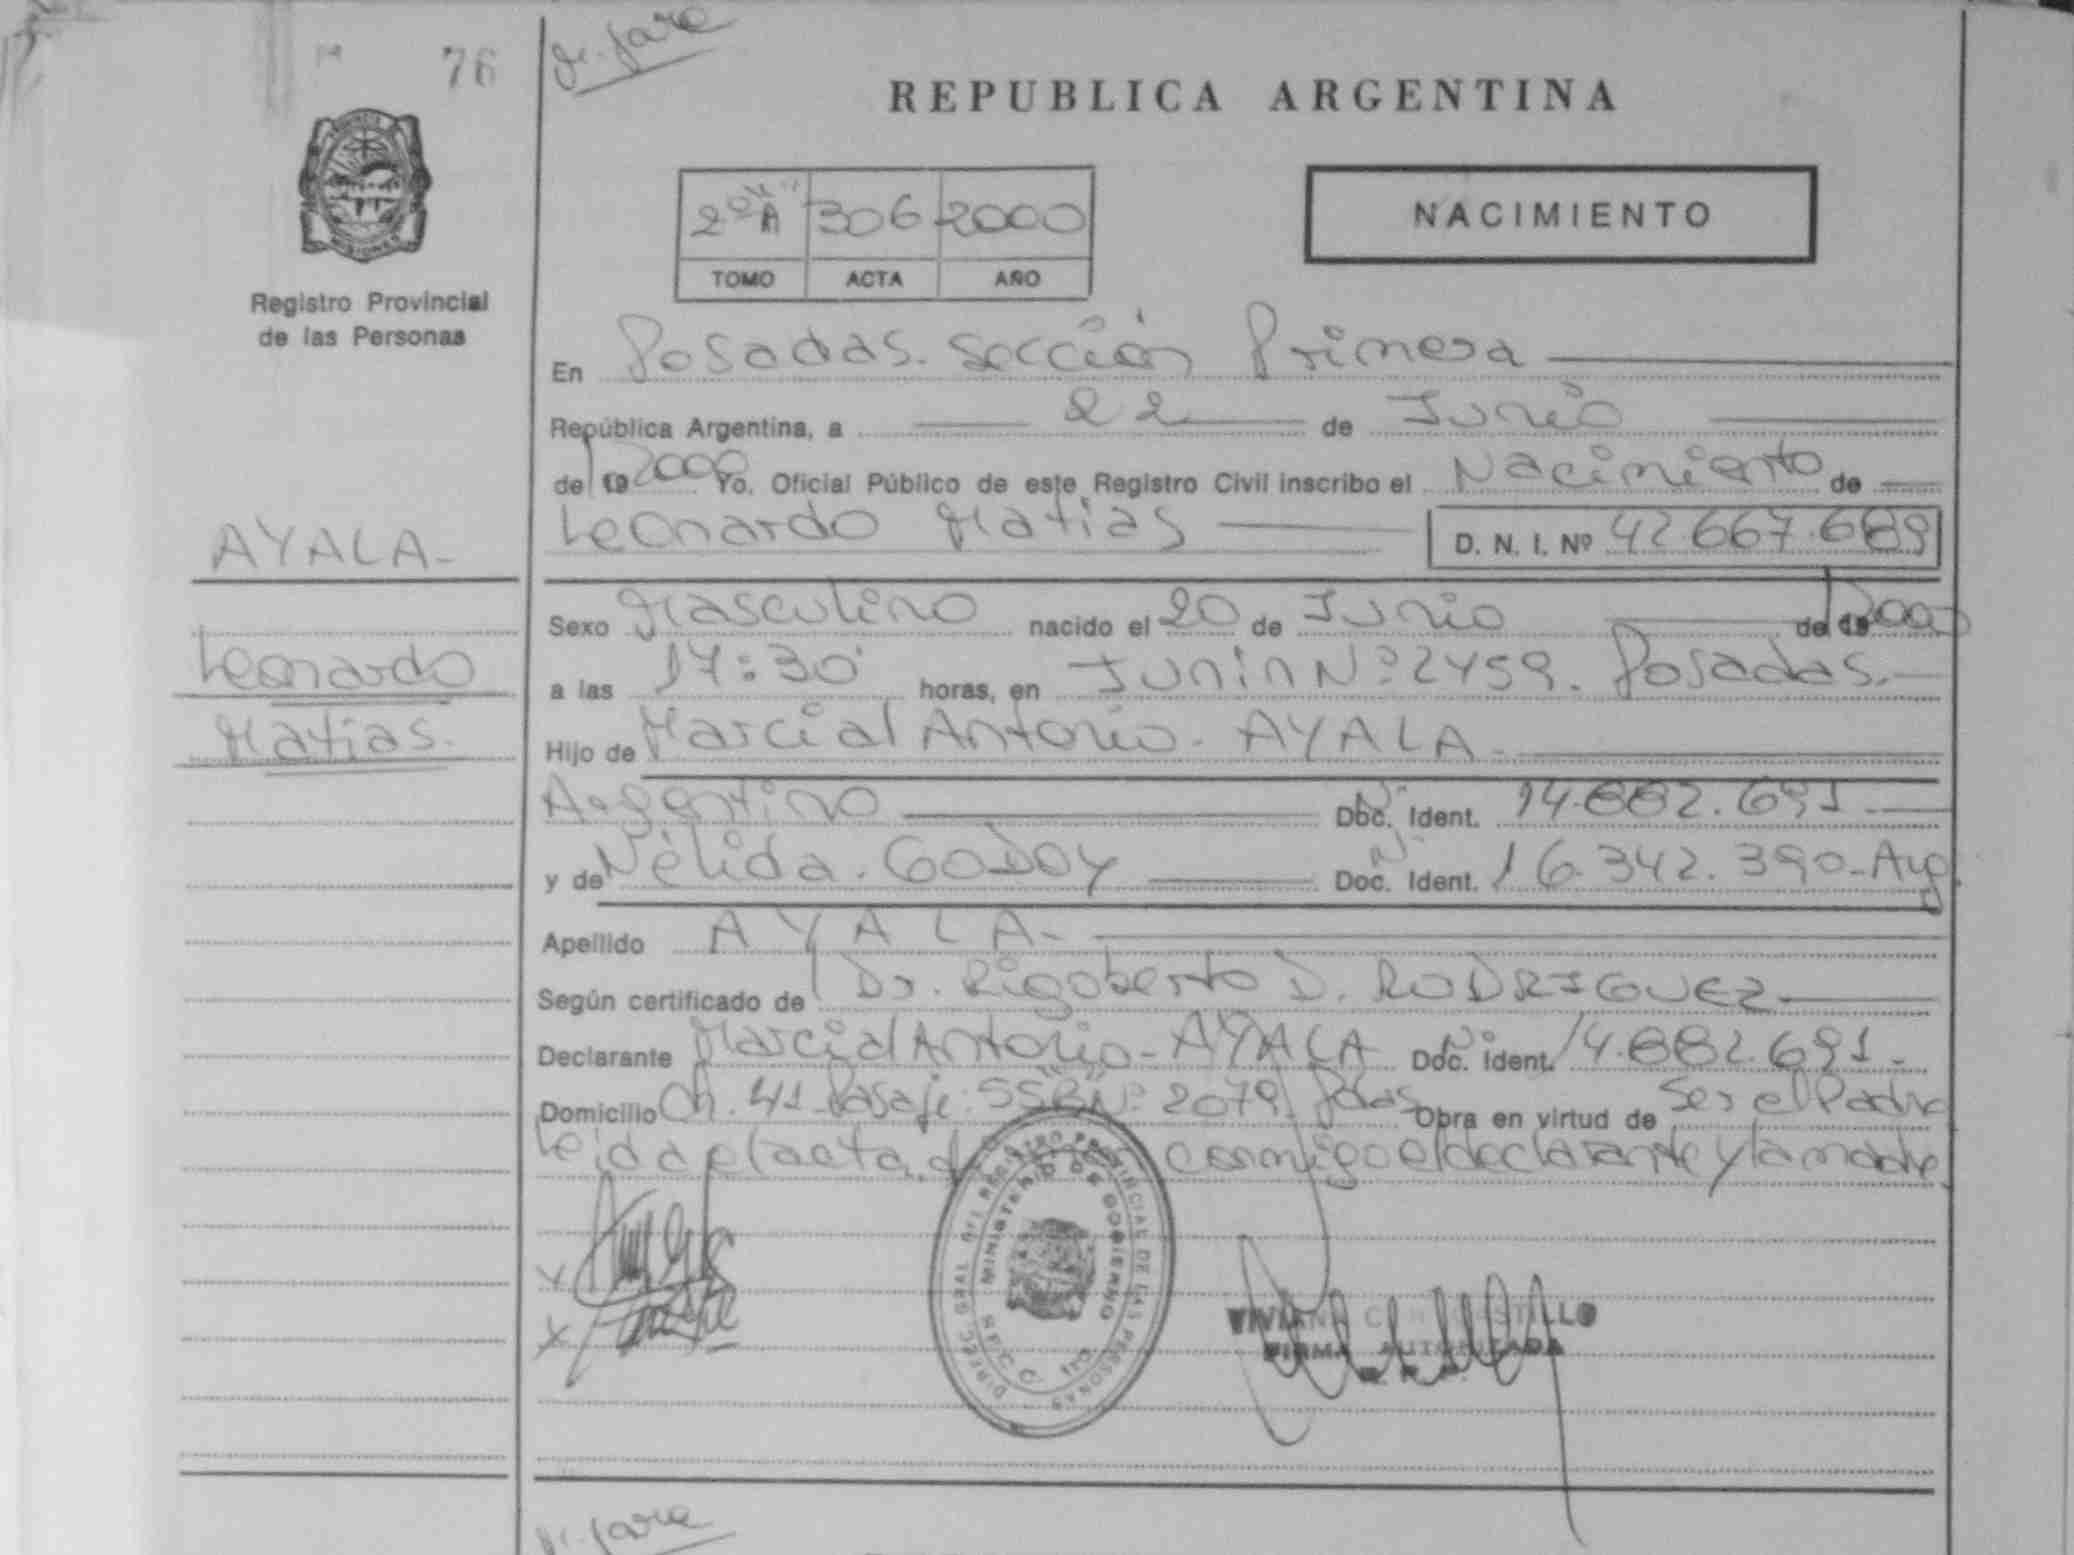 76
REPUBLICA ARGENTINA
2º "A" 306 2000
TOMO ACTA AÑO
NACIMIENTO
Registro Provincial
de las Personas
En Posadas. Sección Primera
República Argentina, a 22 de Junio
de 19 2000 Yo, Oficial Público de este Registro Civil inscribo el Nacimiento de
Leonardo Matías D. N. I. Nº 42.667.689
AYALA-
Leonardo
Matías.
Sexo Masculino nacido el 20 de Junio de 19 2000
a las 17:30 horas, en Junín Nº 2459. Posadas.
Hijo de Marcial Antonio - AYALA -
Argentino Nº Doc. Ident. 14.882.691.-
y de Nélida. GODOY Nº Doc. Ident. 16.342.390- Arg.
Apellido AYALA-
Según certificado de Dr. Rigoberto D. RODRIGUEZ
Declarante Marcial Antonio - AYALA Nº Doc. Ident. 14.882.691.-
Domicilio Ch. 41 Pasaje. Nº 2079. Pdas. Obra en virtud de Ser el Padre
Leida el acta, conmigo el declarante y la madre
DIREC. GRAL. DEL REGISTRO PROVINCIAL DE LAS PERSONAS
MINISTERIO DE GOBIERNO
VIVIANA CASTILLO
FIRMA AUTORIZADA